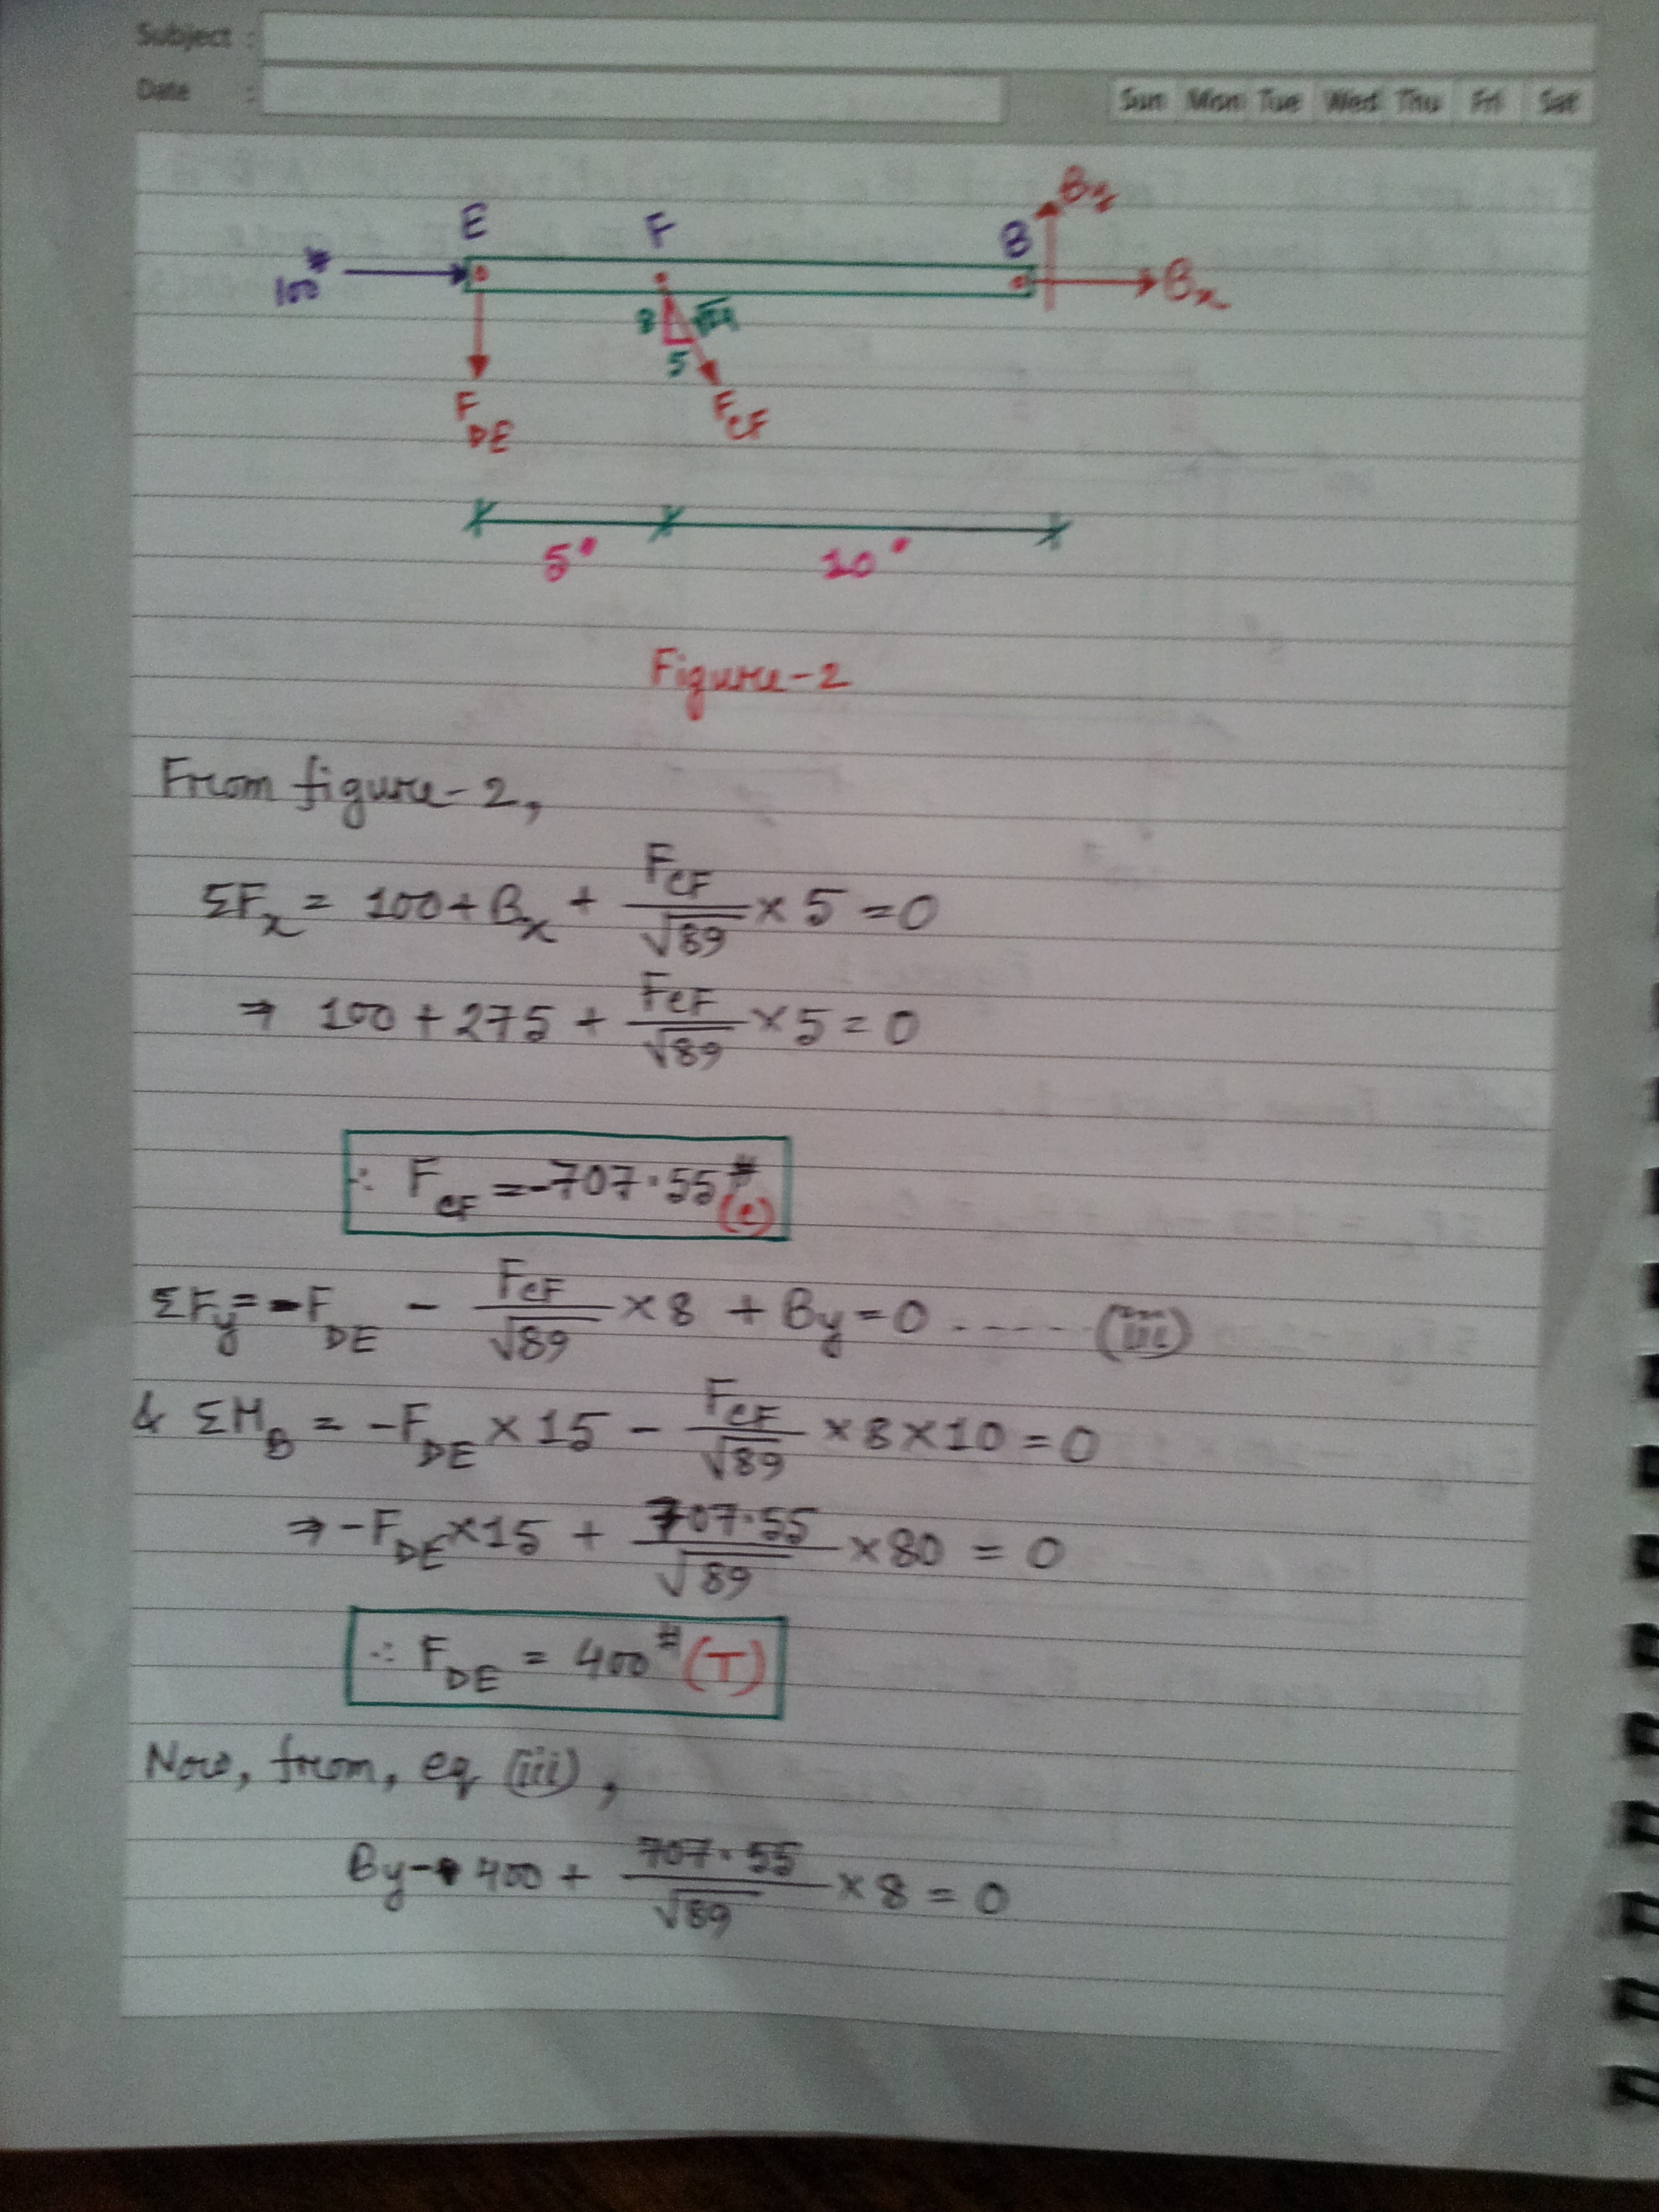 Subject :
Date :
Sun Mon Tue Wed Thu Fri Sat
By
E F B
100# Bx
8 √89
5
F_DE F_CF
5" 10"
Figure-2
From figure-2,
ΣFx = 100 + Bx + F_CF/√89 × 5 = 0
⇒ 100 + 275 + F_CF/√89 × 5 = 0
∴ F_CF = -707.55# (C)
ΣFy = -F_DE - F_CF/√89 × 8 + By = 0 ..... (iii)
& ΣM_B = -F_DE × 15 - F_CF/√89 × 8 × 10 = 0
⇒ -F_DE × 15 + 707.55/√89 × 80 = 0
∴ F_DE = 400# (T)
Now, from, eq (iii),
By - 400 + 707.55/√89 × 8 = 0